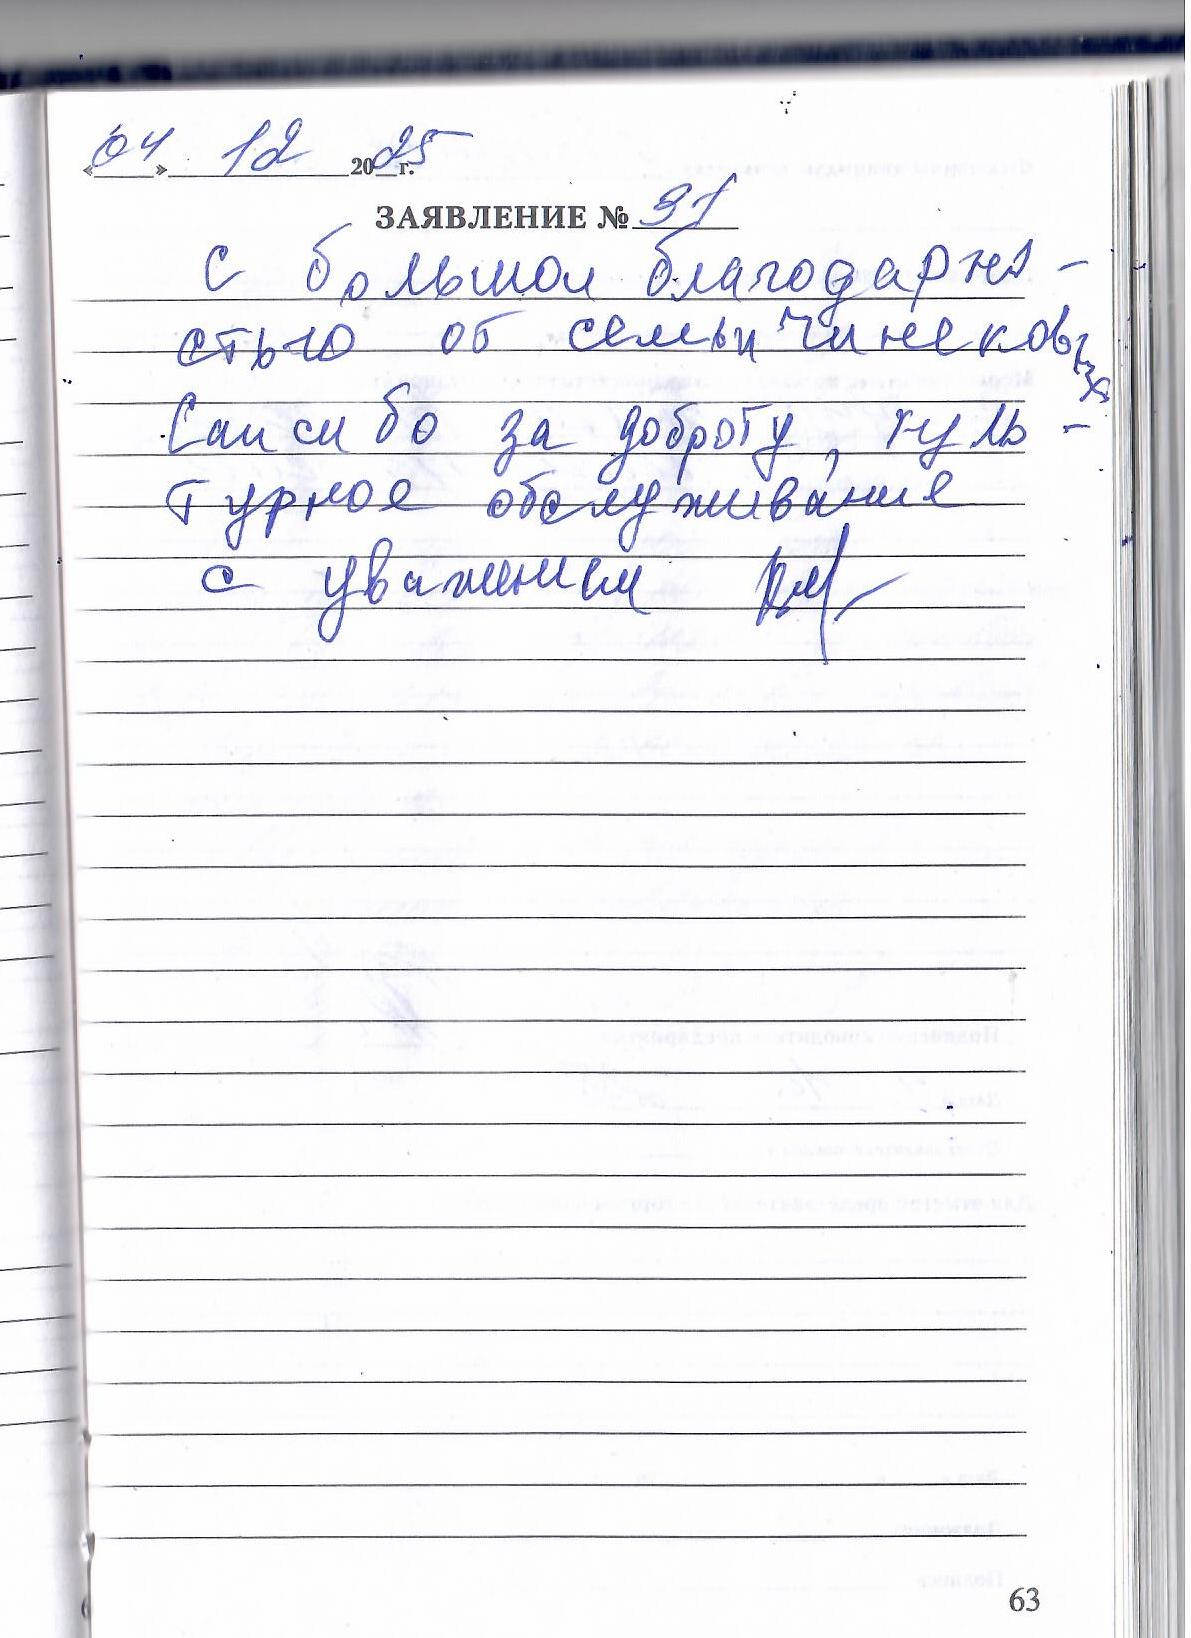 «04» 12 2025г.
ЗАЯВЛЕНИЕ № 31
С большой благодарно-
стью от семьи Чинековых
Спасибо за доброту, куль-
турное обслуживание
с уважением
63